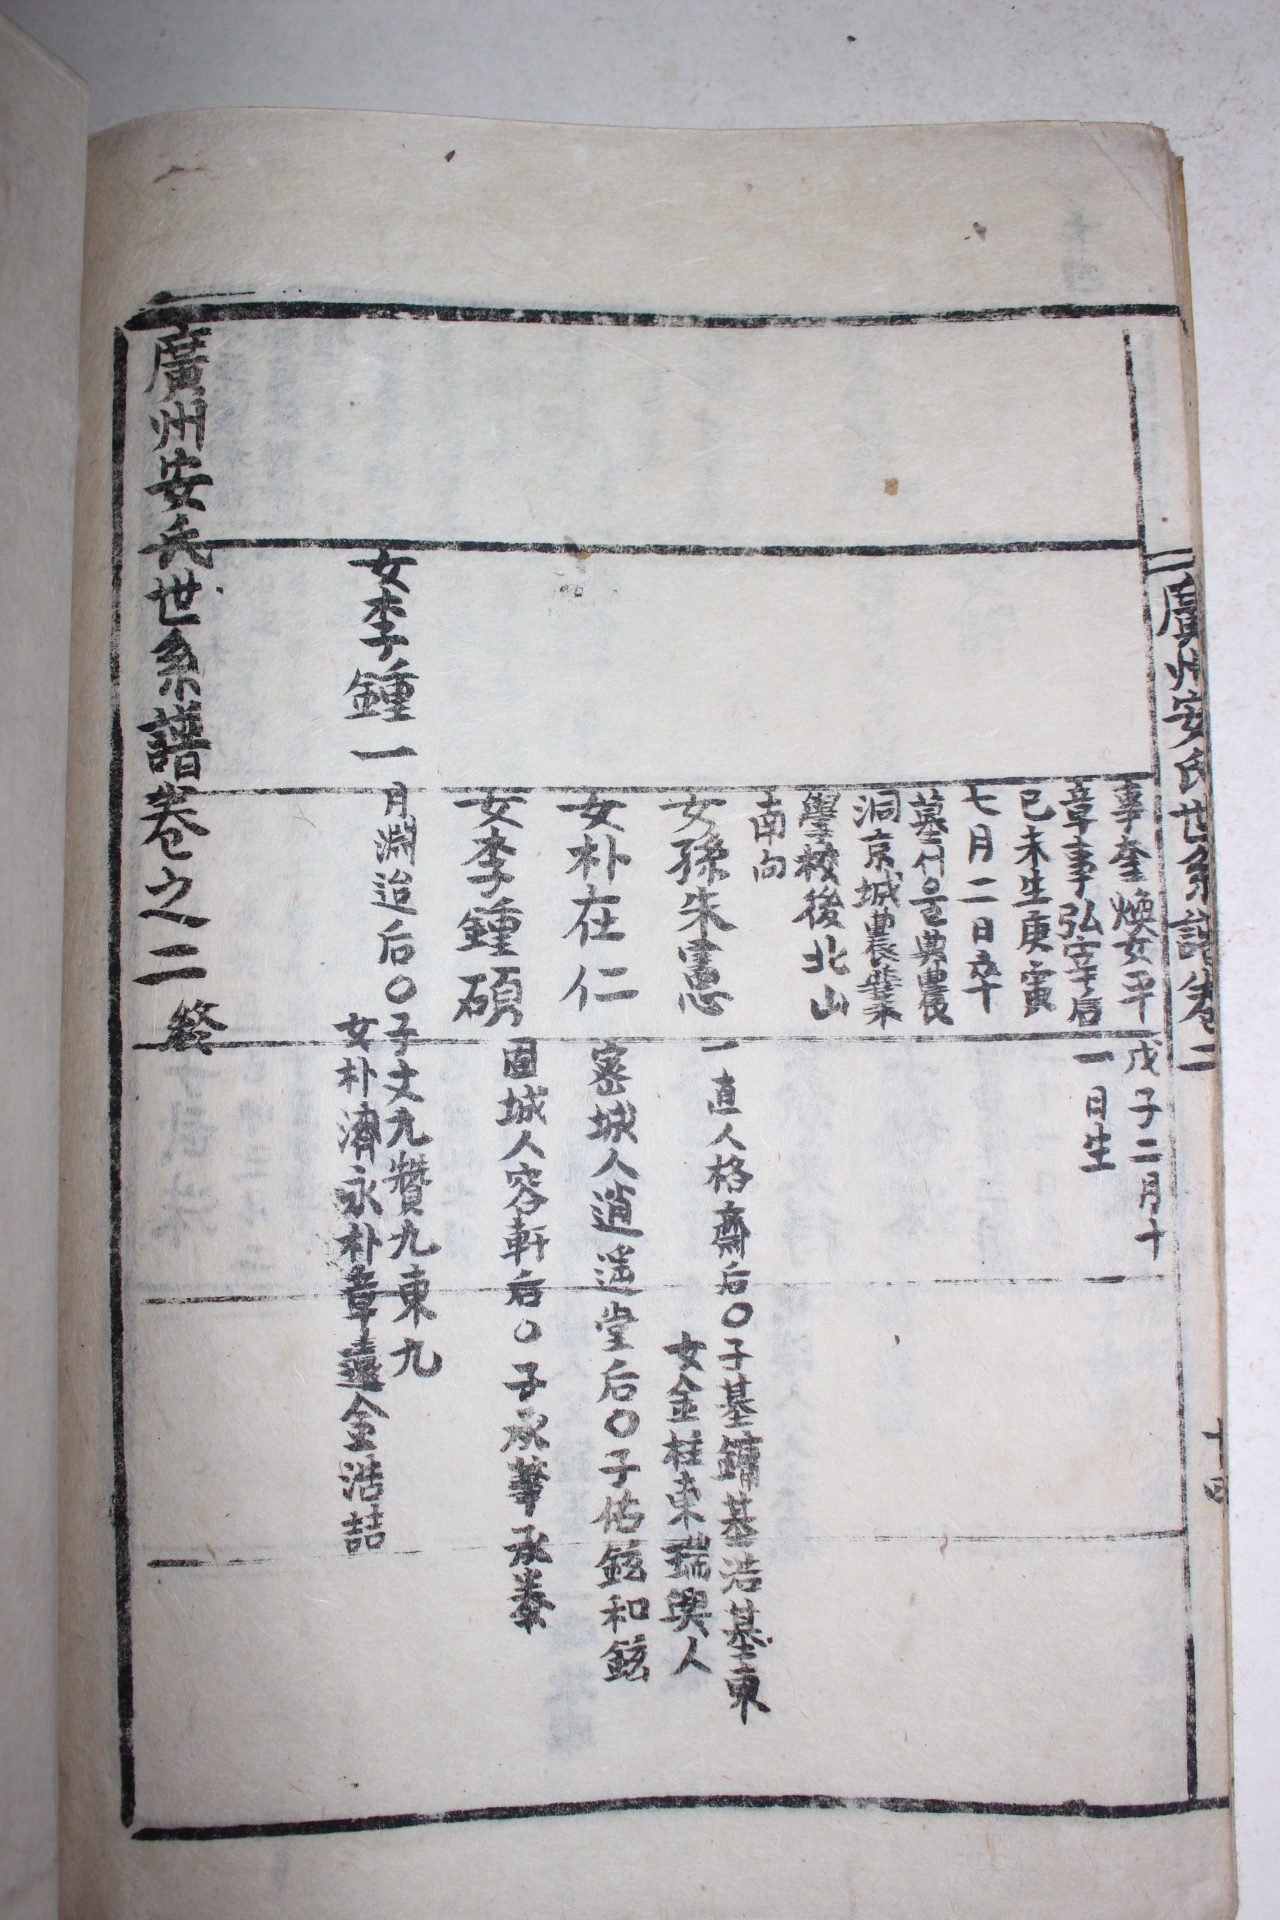 廣州安氏世系譜卷二
十四
事奎煥女平
章事弘宰后
己未生庚寅
七月二日卒
墓서울典農
洞京城農業
學校後北山
南向
戊子二月十
一日生
女孫朱憲
一直人格齋后〇子基鏞基浩基東
女金柱東瑞興人
女朴在仁
密城人逍遥堂后〇子佑鉉和鉉
女李鍾碩
固城人容軒后〇子承華承養
女李鍾一
月淵迨后〇子丈九贊九東九
女朴濟永朴章遠金浩喆
廣州安氏世系譜卷之二終